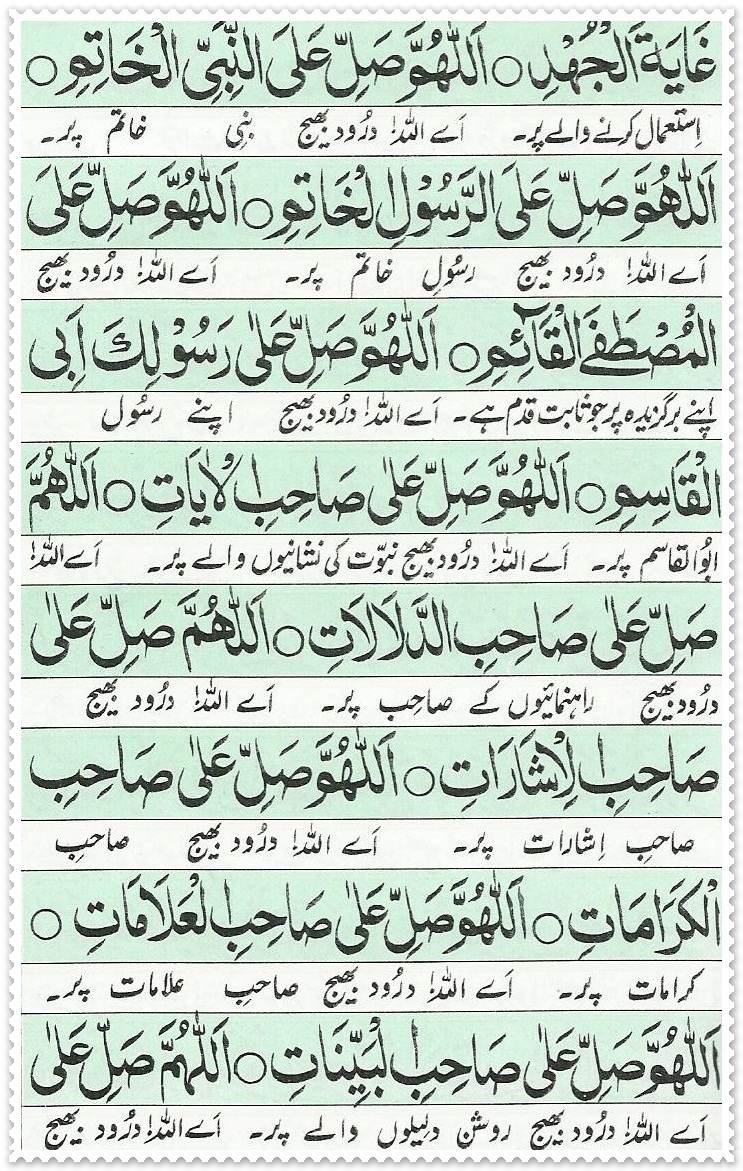 غَايَةَ الْجُهْدِ ○ اَللّٰهُمَّ صَلِّ عَلَى النَّبِيِّ الْخَاتِمِ ○
اِستعمال کرنے والے پر۔ اَے اللہ! درُود بھیج نبی خاتم پر۔
اَللّٰهُمَّ صَلِّ عَلَى الرَّسُوْلِ الْخَاتِمِ ○ اَللّٰهُمَّ صَلِّ عَلَى
اَے اللہ! درُود بھیج رسُولِ خاتم پر۔ اَے اللہ! درُود بھیج
الْمُصْطَفَى الْقَآئِمِ ○ اَللّٰهُمَّ صَلِّ عَلٰى رَسُوْلِكَ اَبِى
اپنے برگزیدہ پر جو ثابت قدم ہے۔ اَے اللہ! درُود بھیج اپنے رسُول
الْقَاسِمِ ○ اَللّٰهُمَّ صَلِّ عَلٰى صَاحِبِ الْاٰيَاتِ ○ اَللّٰهُمَّ
ابُوالقاسم پر۔ اَے اللہ! درُود بھیج نبوّت کی نشانیوں والے پر۔ اَے اللہ!
صَلِّ عَلٰى صَاحِبِ الدَّلَالَاتِ ○ اَللّٰهُمَّ صَلِّ عَلٰى
درُود بھیج راہنمائیوں کے صاحب پر۔ اَے اللہ! درُود بھیج
صَاحِبِ الْاِشَارَاتِ ○ اَللّٰهُمَّ صَلِّ عَلٰى صَاحِبِ
صاحبِ اِشارات پر۔ اَے اللہ! درُود بھیج صاحبِ
الْكَرَامَاتِ ○ اَللّٰهُمَّ صَلِّ عَلٰى صَاحِبِ الْعَلَامَاتِ ○
کرامات پر۔ اَے اللہ! درُود بھیج صاحبِ علامات پر۔
اَللّٰهُمَّ صَلِّ عَلٰى صَاحِبِ الْبَيِّنَاتِ ○ اَللّٰهُمَّ صَلِّ عَلٰى
اَے اللہ! درُود بھیج روشن دلیلوں والے پر۔ اَے اللہ! درُود بھیج